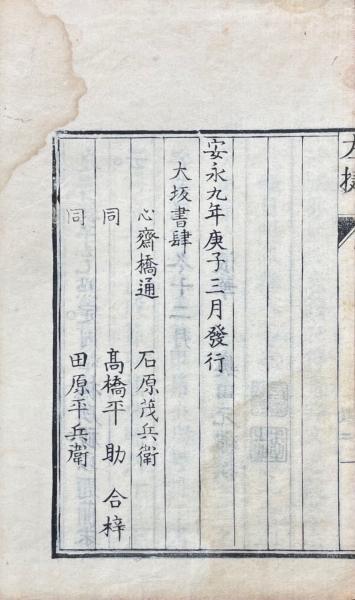 安永九年庚子三月發行
大坂書肆
心齋橋通 石原茂兵衛
同 髙橋平助 合梓
同 田原平兵衛